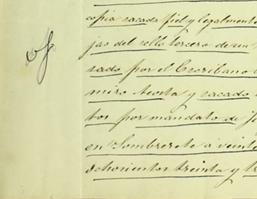 copia sacada fiel y legalmente
jas del sello tercero de un
sado por el Escribano
miro Acosta y sacado
tos por mandato de J
en Sombrerete á veint
ochocientos treinta y tr